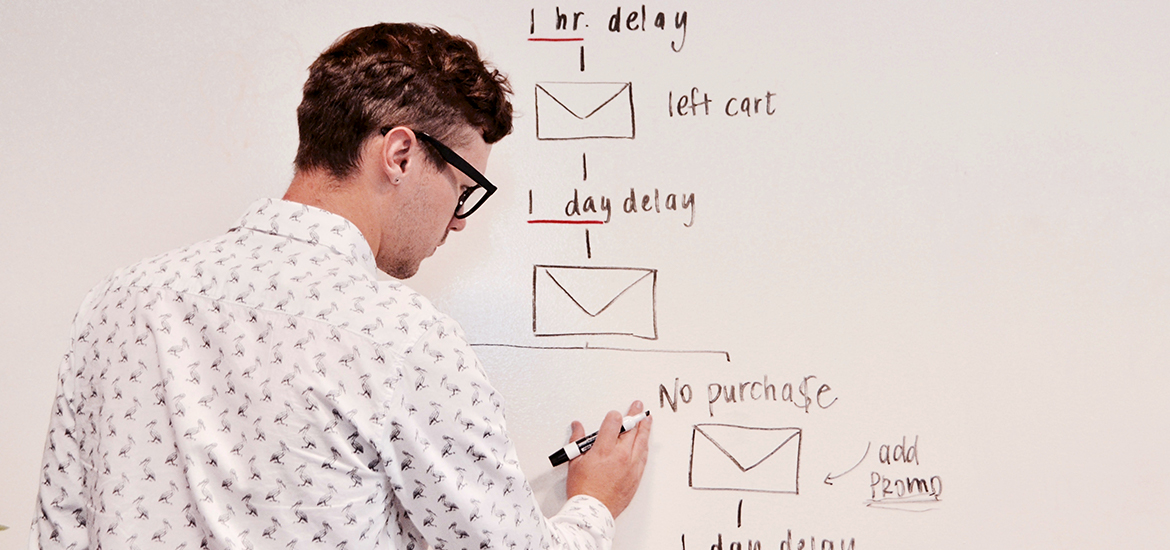 1 hr. delay
left cart
1 day delay
No purchase
add
PROMO
1 day delay